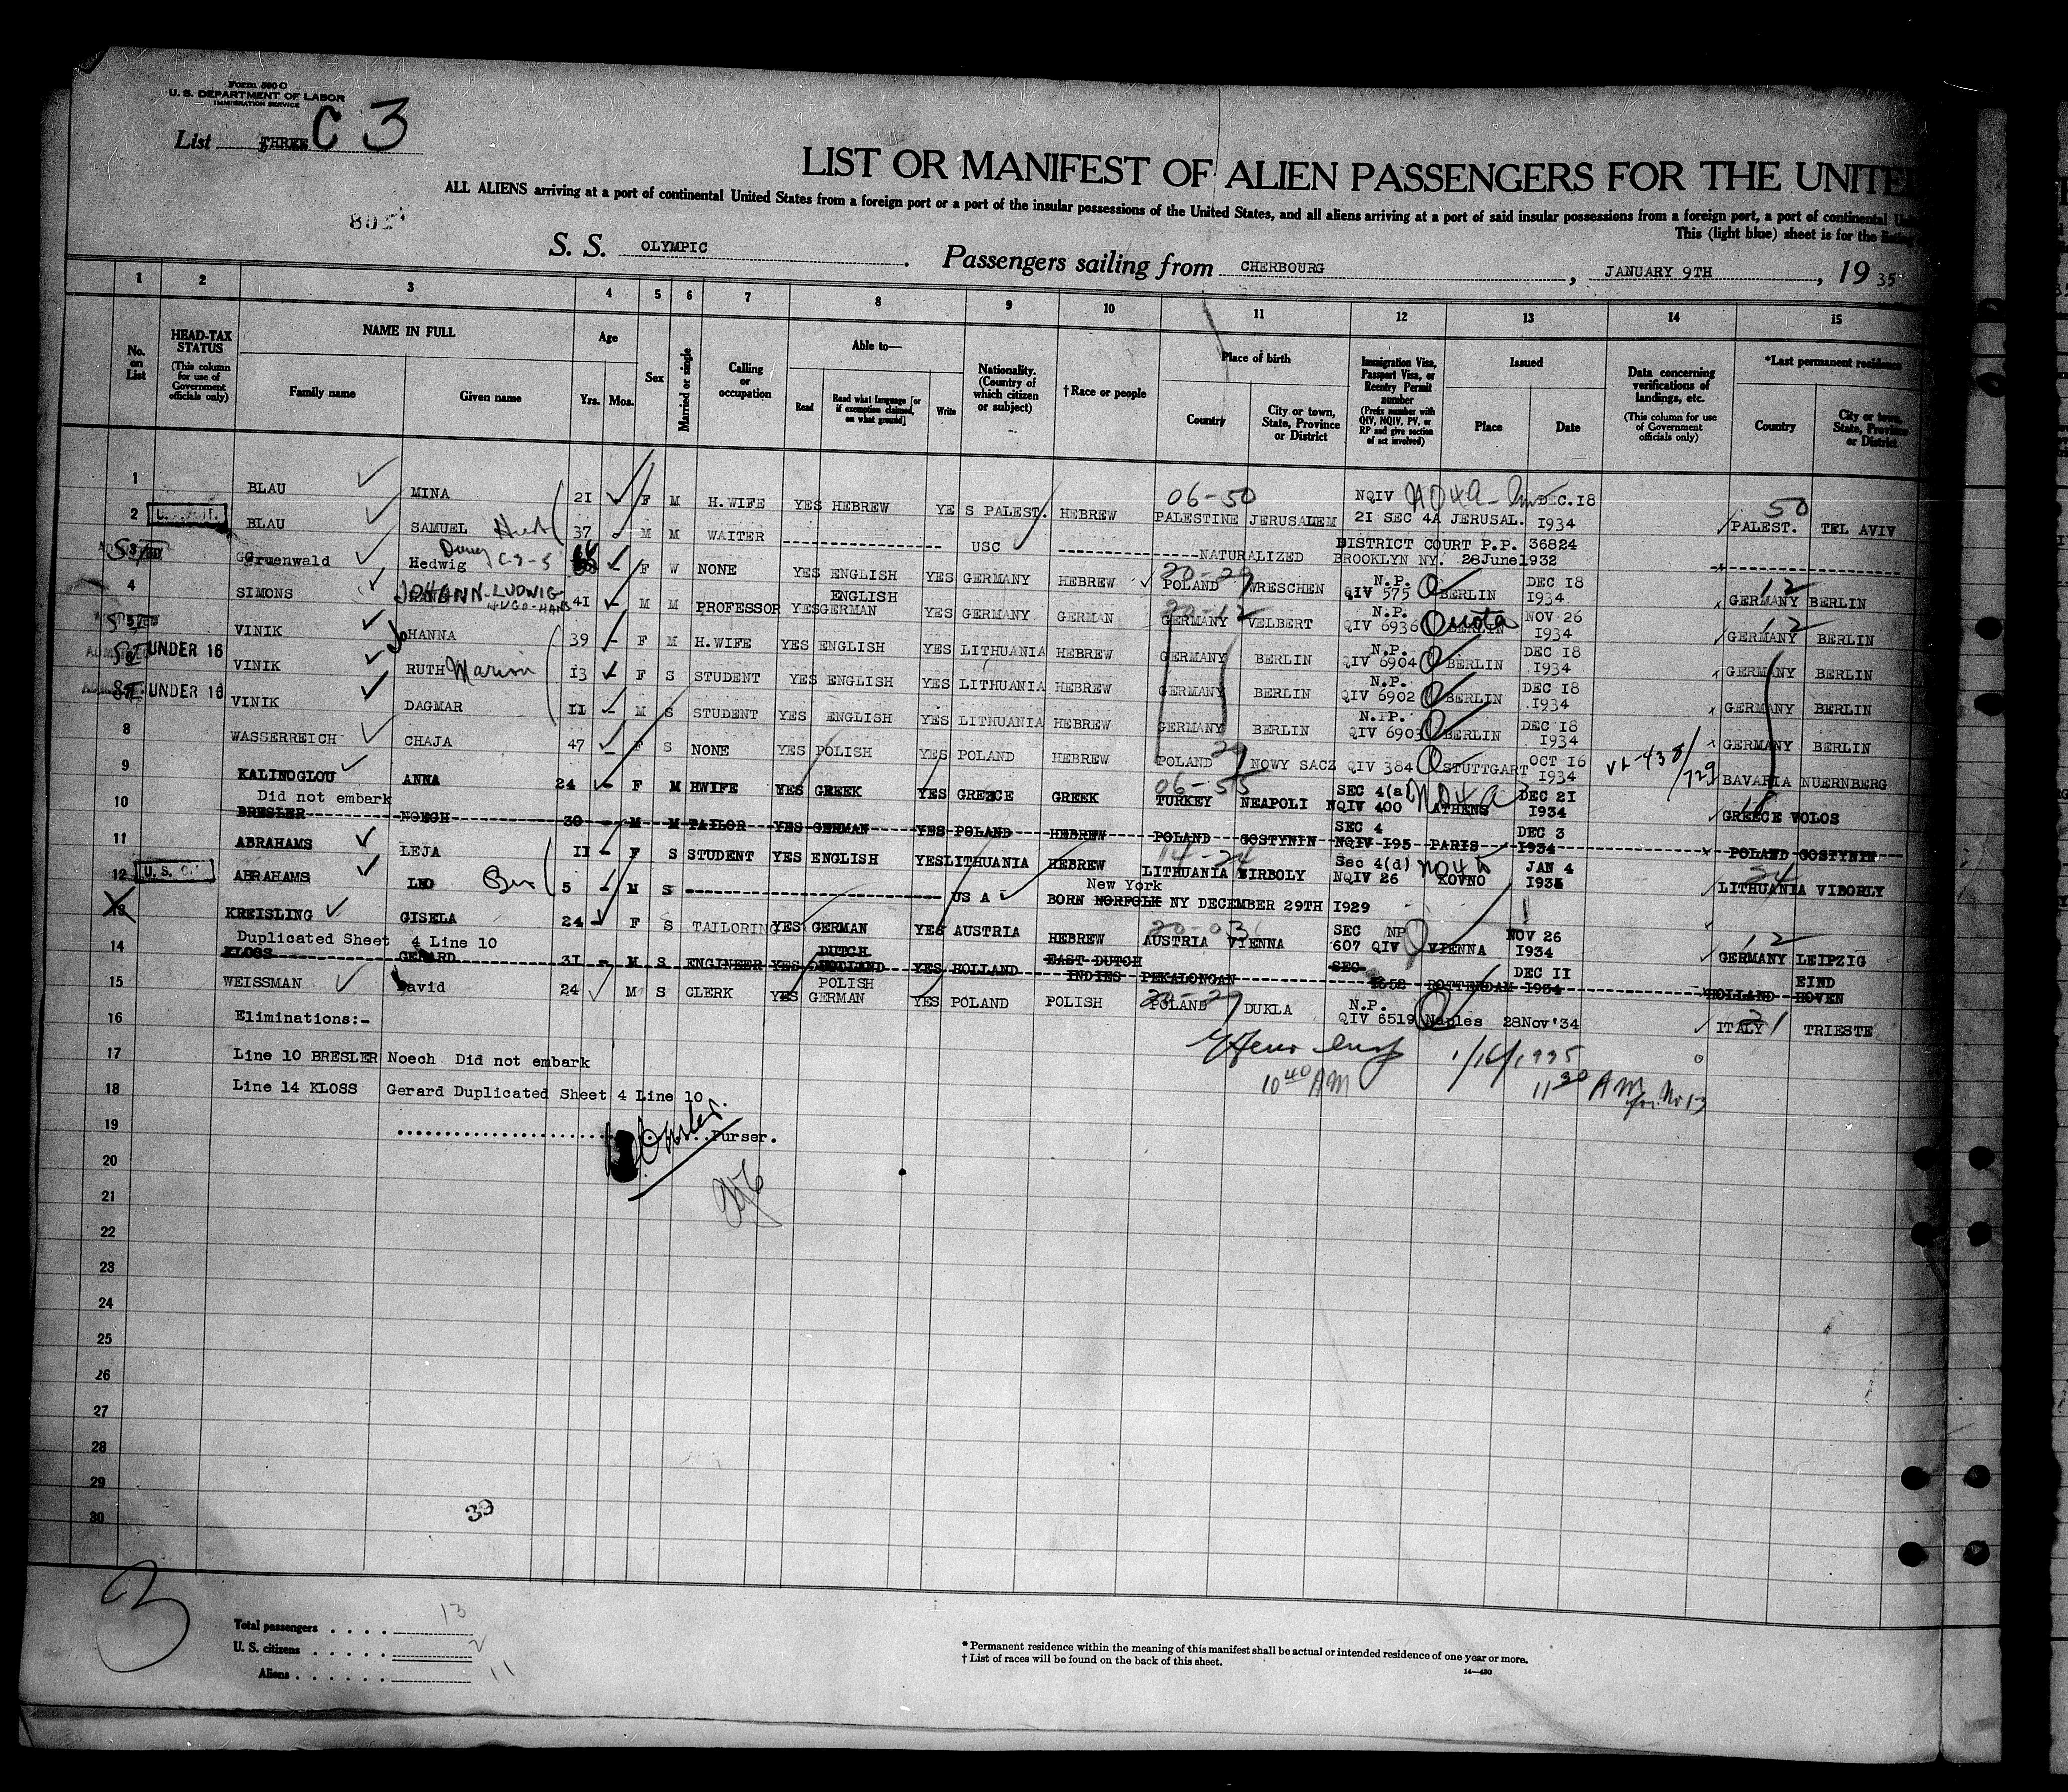 Form 500 C
U. S. DEPARTMENT OF LABOR
IMMIGRATION SERVICE
List THREE C 3
LIST OR MANIFEST OF ALIEN PASSENGERS FOR THE UNITE
ALL ALIENS arriving at a port of continental United States from a foreign port or a port of the insular possessions of the United States, and all aliens arriving at a port of said insular possessions from a foreign port, a port of continental
This (light blue) sheet is for the listing
S. S. OLYMPIC . Passengers sailing from CHERBOURG , JANUARY 9TH , 19 35
1 2 3 4 5 6 7 8 9 10 11 12 13 14 15
No. on List
HEAD-TAX STATUS (This column for use of Government officials only)
NAME IN FULL
Family name
Given name
Age
Yrs. Mos.
Sex
Married or single
Calling or occupation
Able to—
Read
Read what language [or if exemption claimed, on what ground]
Write
Nationality. (Country of which citizen or subject)
†Race or people
Place of birth
Country
City or town, State, Province or District
Immigration Visa, Passport Visa, or Reentry Permit number (Prefix number with QIV, NQIV, PV, or RP and give section of act involved)
Issued
Place
Date
Data concerning verifications of landings, etc. (This column for use of Government officials only)
*Last permanent residence
Country
City or town, State, Province or District
1 BLAU MINA 21 F M H.WIFE YES HEBREW YES PALEST. HEBREW 06-50 PALESTINE JERUSALEM NQIV 21 SEC 4A JERUSAL. DEC.18 1934 50 PALEST. TEL AVIV
2 BLAU SAMUEL 37 M M WAITER USC NATURALIZED DISTRICT COURT P.P. 36824 BROOKLYN NY. 28June1932
3 Gruenwald Hedwig C3-5 F W NONE YES ENGLISH YES GERMANY HEBREW 20-29 POLAND WRESCHEN N.P. QIV 575 BERLIN DEC 18 1934 12 GERMANY BERLIN
4 SIMONS JOHANN-LUDWIG HUGO-HANS 41 M M PROFESSOR YES ENGLISH GERMAN YES GERMANY GERMAN 20-12 GERMANY VELBERT N.P. QIV 6936 Quota BERLIN NOV 26 1934 12 GERMANY BERLIN
5 VINIK JOHANNA 39 F M H.WIFE YES ENGLISH YES LITHUANIA HEBREW GERMANY BERLIN N.P. QIV 6904 BERLIN DEC 18 1934 GERMANY BERLIN
UNDER 16 VINIK RUTH Marion 13 F S STUDENT YES ENGLISH YES LITHUANIA HEBREW GERMANY BERLIN N.P. QIV 6902 BERLIN DEC 18 1934 GERMANY BERLIN
UNDER 16 VINIK DAGMAR 11 M S STUDENT YES ENGLISH YES LITHUANIA HEBREW GERMANY BERLIN N.P. QIV 6903 BERLIN DEC 18 1934 GERMANY BERLIN
8 WASSERREICH CHAJA 47 F S NONE YES POLISH YES POLAND HEBREW POLAND 29 NOWY SACZ QIV 384 STUTTGART OCT 16 1934 BAVARIA NUERNBERG
9 KALINOGLOU ANNA 24 F M HWIFE YES GREEK YES GREECE GREEK 06-55 TURKEY NEAPOLI SEC 4(a) NQIV 400 ATHENS DEC 21 1934 GREECE VOLOS
Did not embark
10 BRESLER NOECH 30 M M TAILOR YES GERMAN YES POLAND HEBREW POLAND GOSTYNIN SEC 4 NQIV 195 PARIS DEC 3 1934 POLAND GOSTYNIN
11 ABRAHAMS LEJA 11 F S STUDENT YES ENGLISH YES LITHUANIA HEBREW 14-24 LITHUANIA WIRBOLY Sec 4(d) NQIV 26 KOVNO JAN 4 1935 LITHUANIA VIBORLY
12 ABRAHAMS LEO 5 M S US A BORN NORFOLK New York NY DECEMBER 29TH 1929
13 KREISLING GISELA 24 F S TAILORING YES GERMAN YES AUSTRIA HEBREW 20-03 AUSTRIA VIENNA SEC NP 607 QIV VIENNA NOV 26 1934 12 GERMANY LEIPZIG
Duplicated Sheet 4 Line 10
14 KLOSS GERARD 31 M S ENGINEER YES DUTCH YES HOLLAND EAST DUTCH INDIES PEKALONGAN SEC ROTTERDAM DEC 11 1934 HOLLAND EIND HOVEN
15 WEISSMAN David 24 M S CLERK YES POLISH GERMAN YES POLAND POLISH 20-29 POLAND DUKLA N.P. QIV 6519 Naples 28Nov'34 ITALY TRIESTE
16 Eliminations:-
17 Line 10 BRESLER Noech Did not embark
18 Line 14 KLOSS Gerard Duplicated Sheet 4 Line 10
10 40 AM
11 30 AM
19 Purser.
20
21
22
23
24
25
26
27
28
29
30
39
3
Total passengers 13
U. S. citizens 2
Aliens 11
* Permanent residence within the meaning of this manifest shall be actual or intended residence of one year or more.
† List of races will be found on the back of this sheet.
14—430